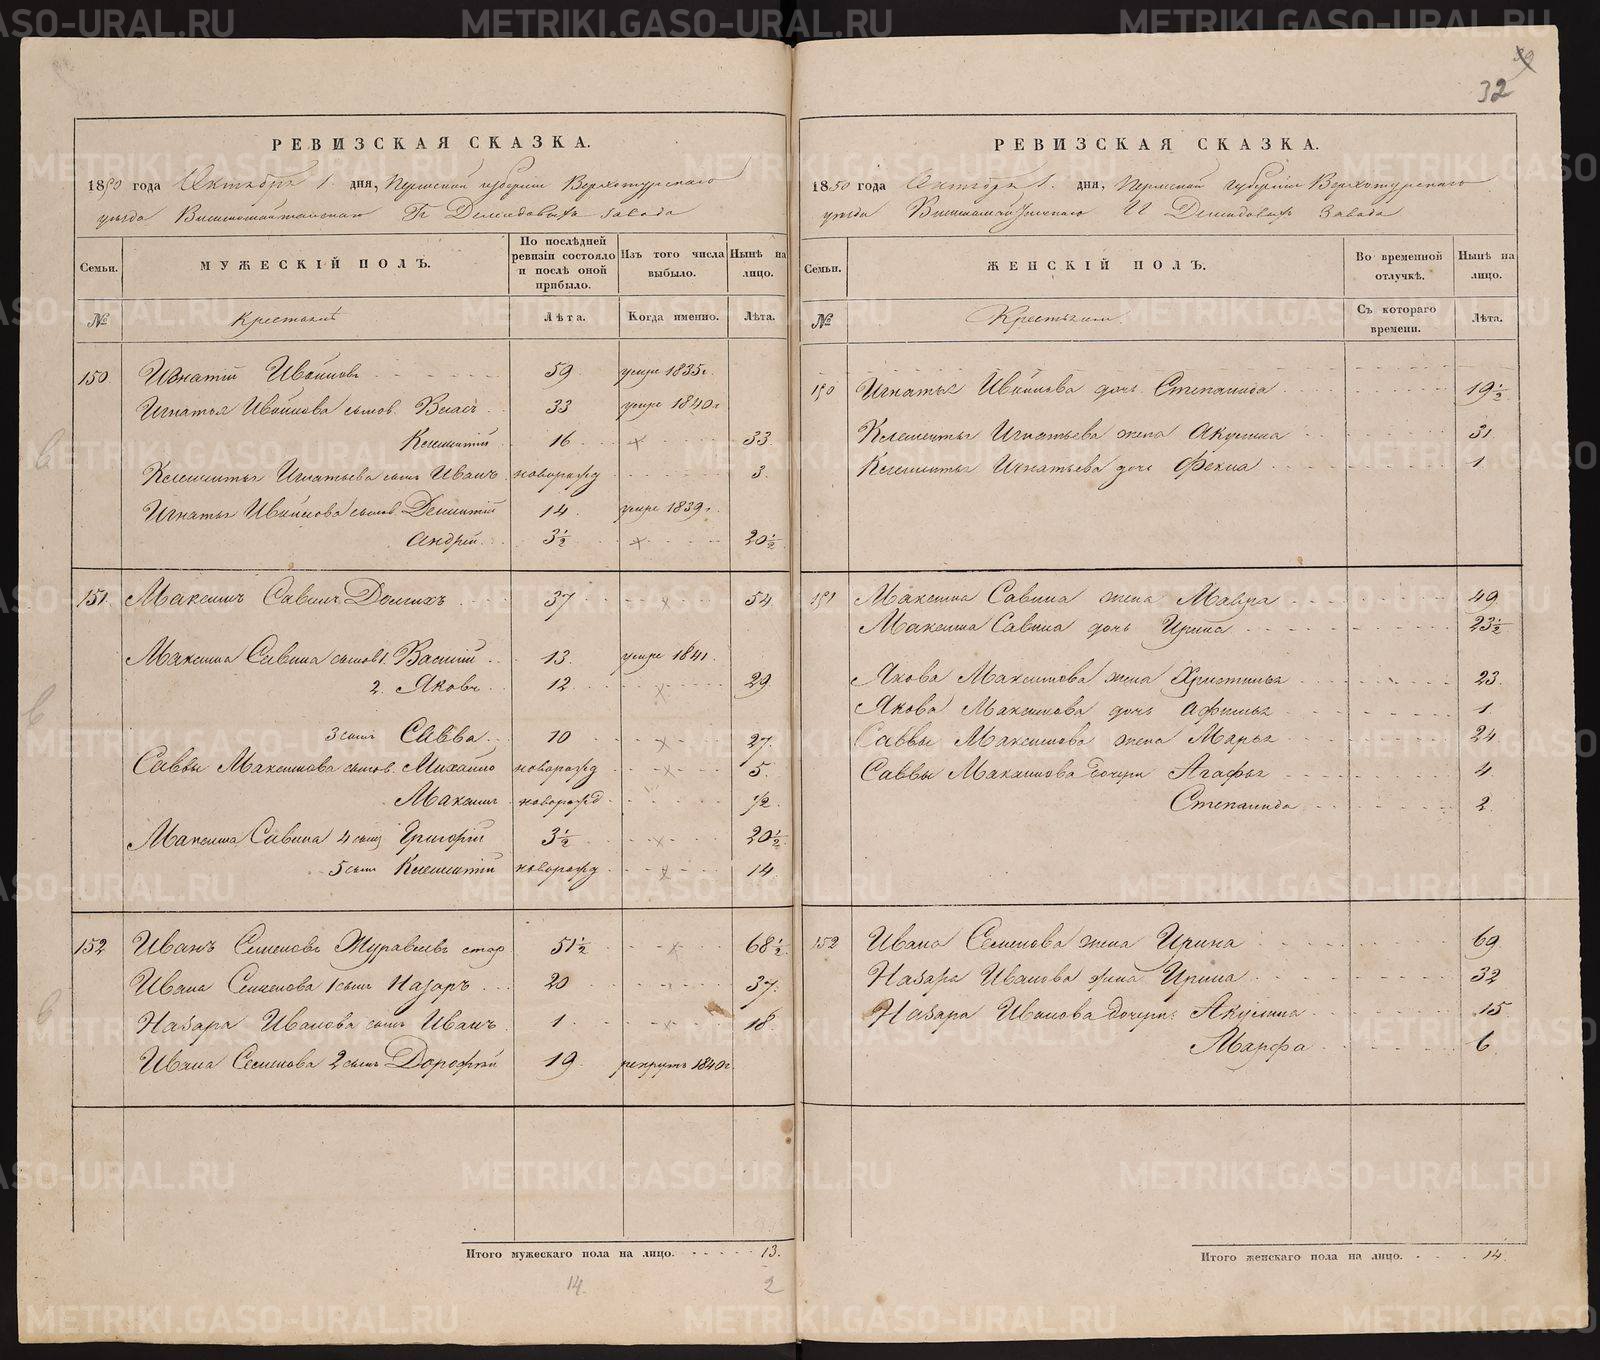 32
РЕВИЗСКАЯ СКАЗКА.
1850 года Октября 1. дня, Пермской губерніи Верхотурскаго
уезда Гг Демидовыхъ завода
Семьи. МУЖЕСКІЙ ПОЛЪ. По послѣдней ревизіи состояло и послѣ оной прибыло. Изъ того числа выбыло. Нынѣ на лицо.
№ Крестьяне Лѣта. Когда именно. Лѣта.
150 Игнатій Ивойловъ 59 умре 1835г.
Игнатья Ивойлова сынов. Власъ 33 умре 1840г
Климентій 16 33
Климентья Игнатьева сынъ Иванъ новорожд 3
Игнатья Ивойлова сынов. Дементій 14 умре 1839г.
Андрей 3½ 20½
151 Максимъ Савинъ Долгихъ 37 54
Максима Савина сынов 1. Василій 13 умре 1841
2. Яковъ 12 29
3 сынъ Савва 10 27
Саввы Максимова сынов. Михайло новорожд 5
Максимъ новорожд ½
Максима Савина 4 сынъ Григорій 3½ 20½
5 сынъ Климентій новорожд 14
152 Иванъ Семеновъ Журавлевъ стар 51½ 68½
Ивана Семенова 1 сынъ Назаръ 20 37
Назара Иванова сынъ Иванъ 1 18
Ивана Семенова 2 сынъ Дорофей 19 рекрутъ 1840г.
Итого мужескаго пола на лицо. 13.
14. 2
РЕВИЗСКАЯ СКАЗКА.
1850 года Октября 1. дня, Пермской губерніи Верхотурскаго
уезда Демидовыхъ завода
Семьи. ЖЕНСКІЙ ПОЛЪ. Во временной отлучкѣ. Нынѣ на лицо.
№ Съ котораго времени. Лѣта.
150 Игнатья Ивойлова дочь Степанида 19½
Климентья Игнатьева жена Акулина 31
Климентья Игнатьева дочь Фекла 1
151 Максима Савина жена Мавра 49
Максима Савина дочь Ирина 23½
Якова Максимова жена Христинья 23
Якова Максимова дочь Афимья 1
Саввы Максимова жена Марья 24
Саввы Максимова дочери Агафья 4
Степанида 2
152 Ивана Семенова жена Ирина 69
Назара Иванова жена Ирина 32
Назара Иванова дочери: Акулина 15
Марфа 6
Итого женскаго пола на лицо. 14
METRIKI.GASO-URAL.RU